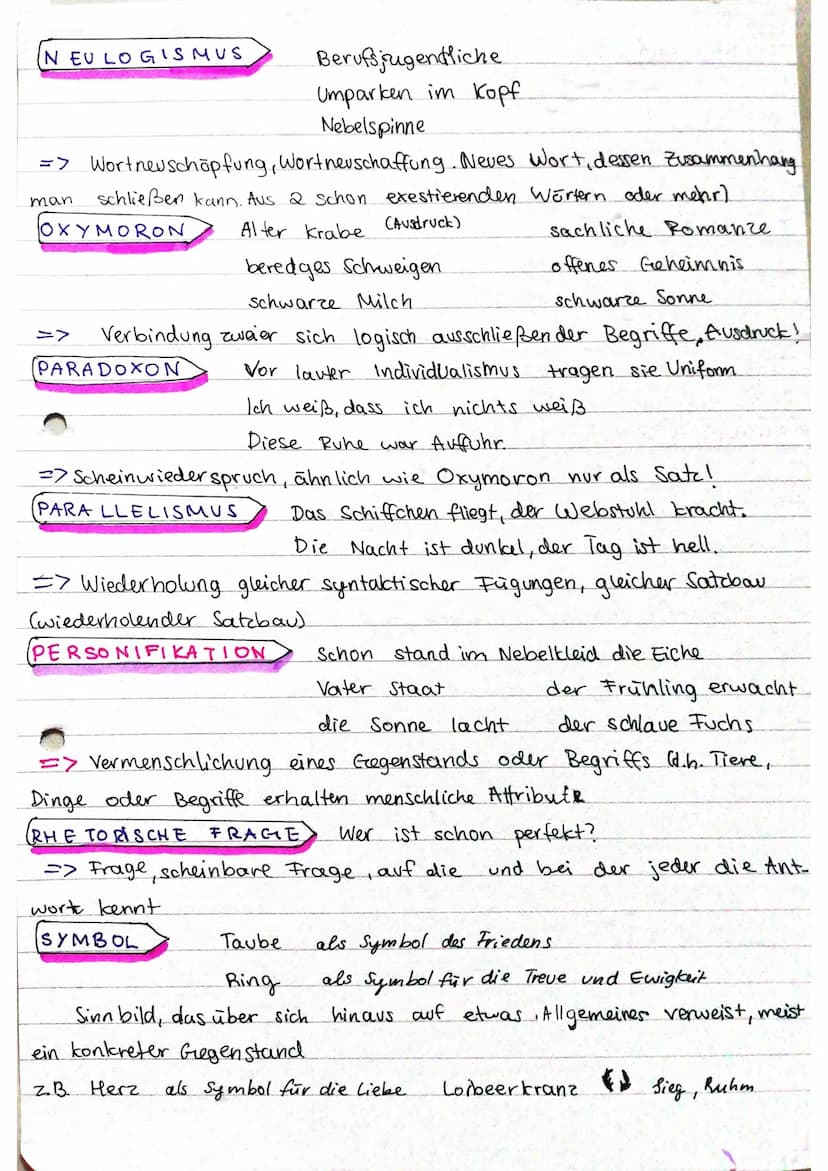 NEULOGISMUS Berufsjugendliche
Umparken im Kopf
Nebelspinne
=> Wortneuschöpfung, Wortneuschaffung. Neues Wort, dessen Zusammenhang
man schließen kann. Aus 2 schon exestierenden Wörtern oder mehr)
OXYMORON Alter Krabe (Ausdruck) sachliche Romanze
beredges Schweigen offenes Geheimnis
schwarze Milch schwarze Sonne
=> Verbindung zwaier sich logisch ausschließender Begriffe, Ausdruck!
PARADOXON Vor lauter Individualismus tragen sie Uniform
Ich weiß, dass ich nichts weiß
Diese Ruhe war Aufuhr.
=> Scheinwiederspruch, ähnlich wie Oxymoron nur als Satz!
PARALLELISMUS Das Schiffchen fliegt, der Webstuhl kracht.
Die Nacht ist dunkel, der Tag ist hell.
=> Wiederholung gleicher syntaktischer Fügungen, gleicher Satzbau
(wiederholender Satzbau)
PERSONIFIKATION Schon stand im Nebelkleid die Eiche
Vater Staat der Frühling erwacht
die Sonne lacht der schlaue Fuchs
=> Vermenschlichung eines Gegenstands oder Begriffs (d.h. Tiere,
Dinge oder Begriffe erhalten menschliche Attribute
RHETORISCHE FRAGE Wer ist schon perfekt?
=> Frage, scheinbare Frage, auf die und bei der jeder die Ant-
wort kennt
SYMBOL Taube als Symbol des Friedens
Ring als Symbol für die Treue und Ewigkeit
Sinnbild, das über sich hinaus auf etwas Allgemeines verweist, meist
ein konkreter Gegenstand
z.B. Herz als Symbol für die Liebe Lorbeerkranz Sieg, Ruhm